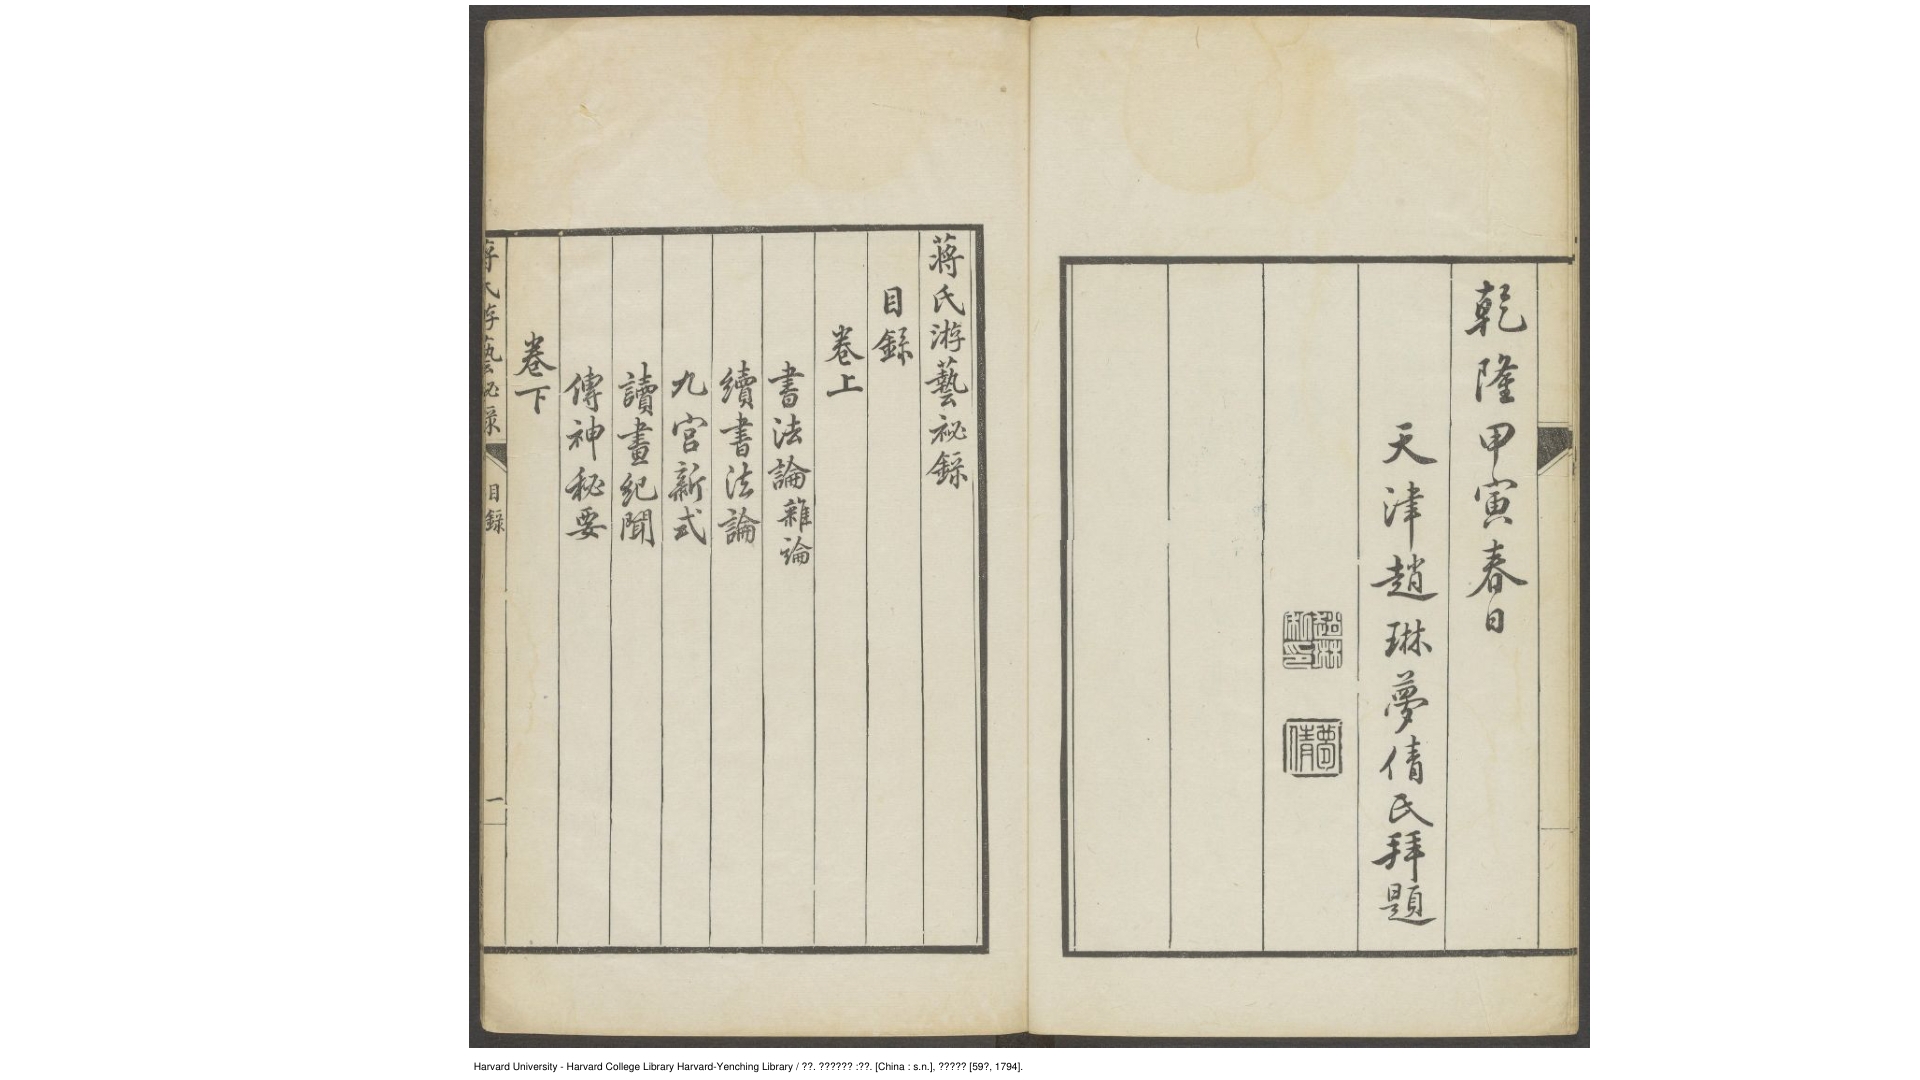 乾隆甲寅春日
天津趙琳夢倩氏拜題
趙琳私印
夢倩
蔣氏游藝祕錄
目錄
卷上
書法論雜論
續書法論
九宮新式
讀畫紀聞
傳神秘要
卷下
蔣氏游藝祕錄
目錄
一
Harvard University - Harvard College Library Harvard-Yenching Library / ??. ?????? :??. [China : s.n.], ????? [59?, 1794].